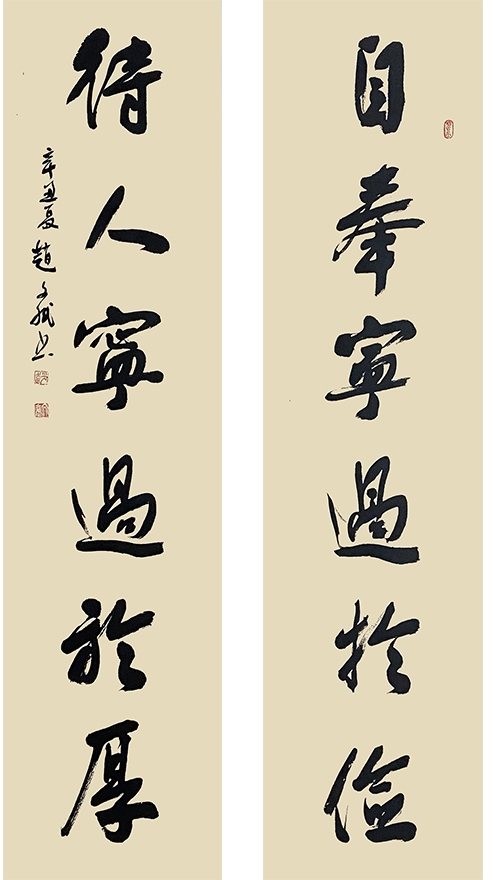 自奉寧過於儉
待人寧過於厚
辛丑夏趙文斌書